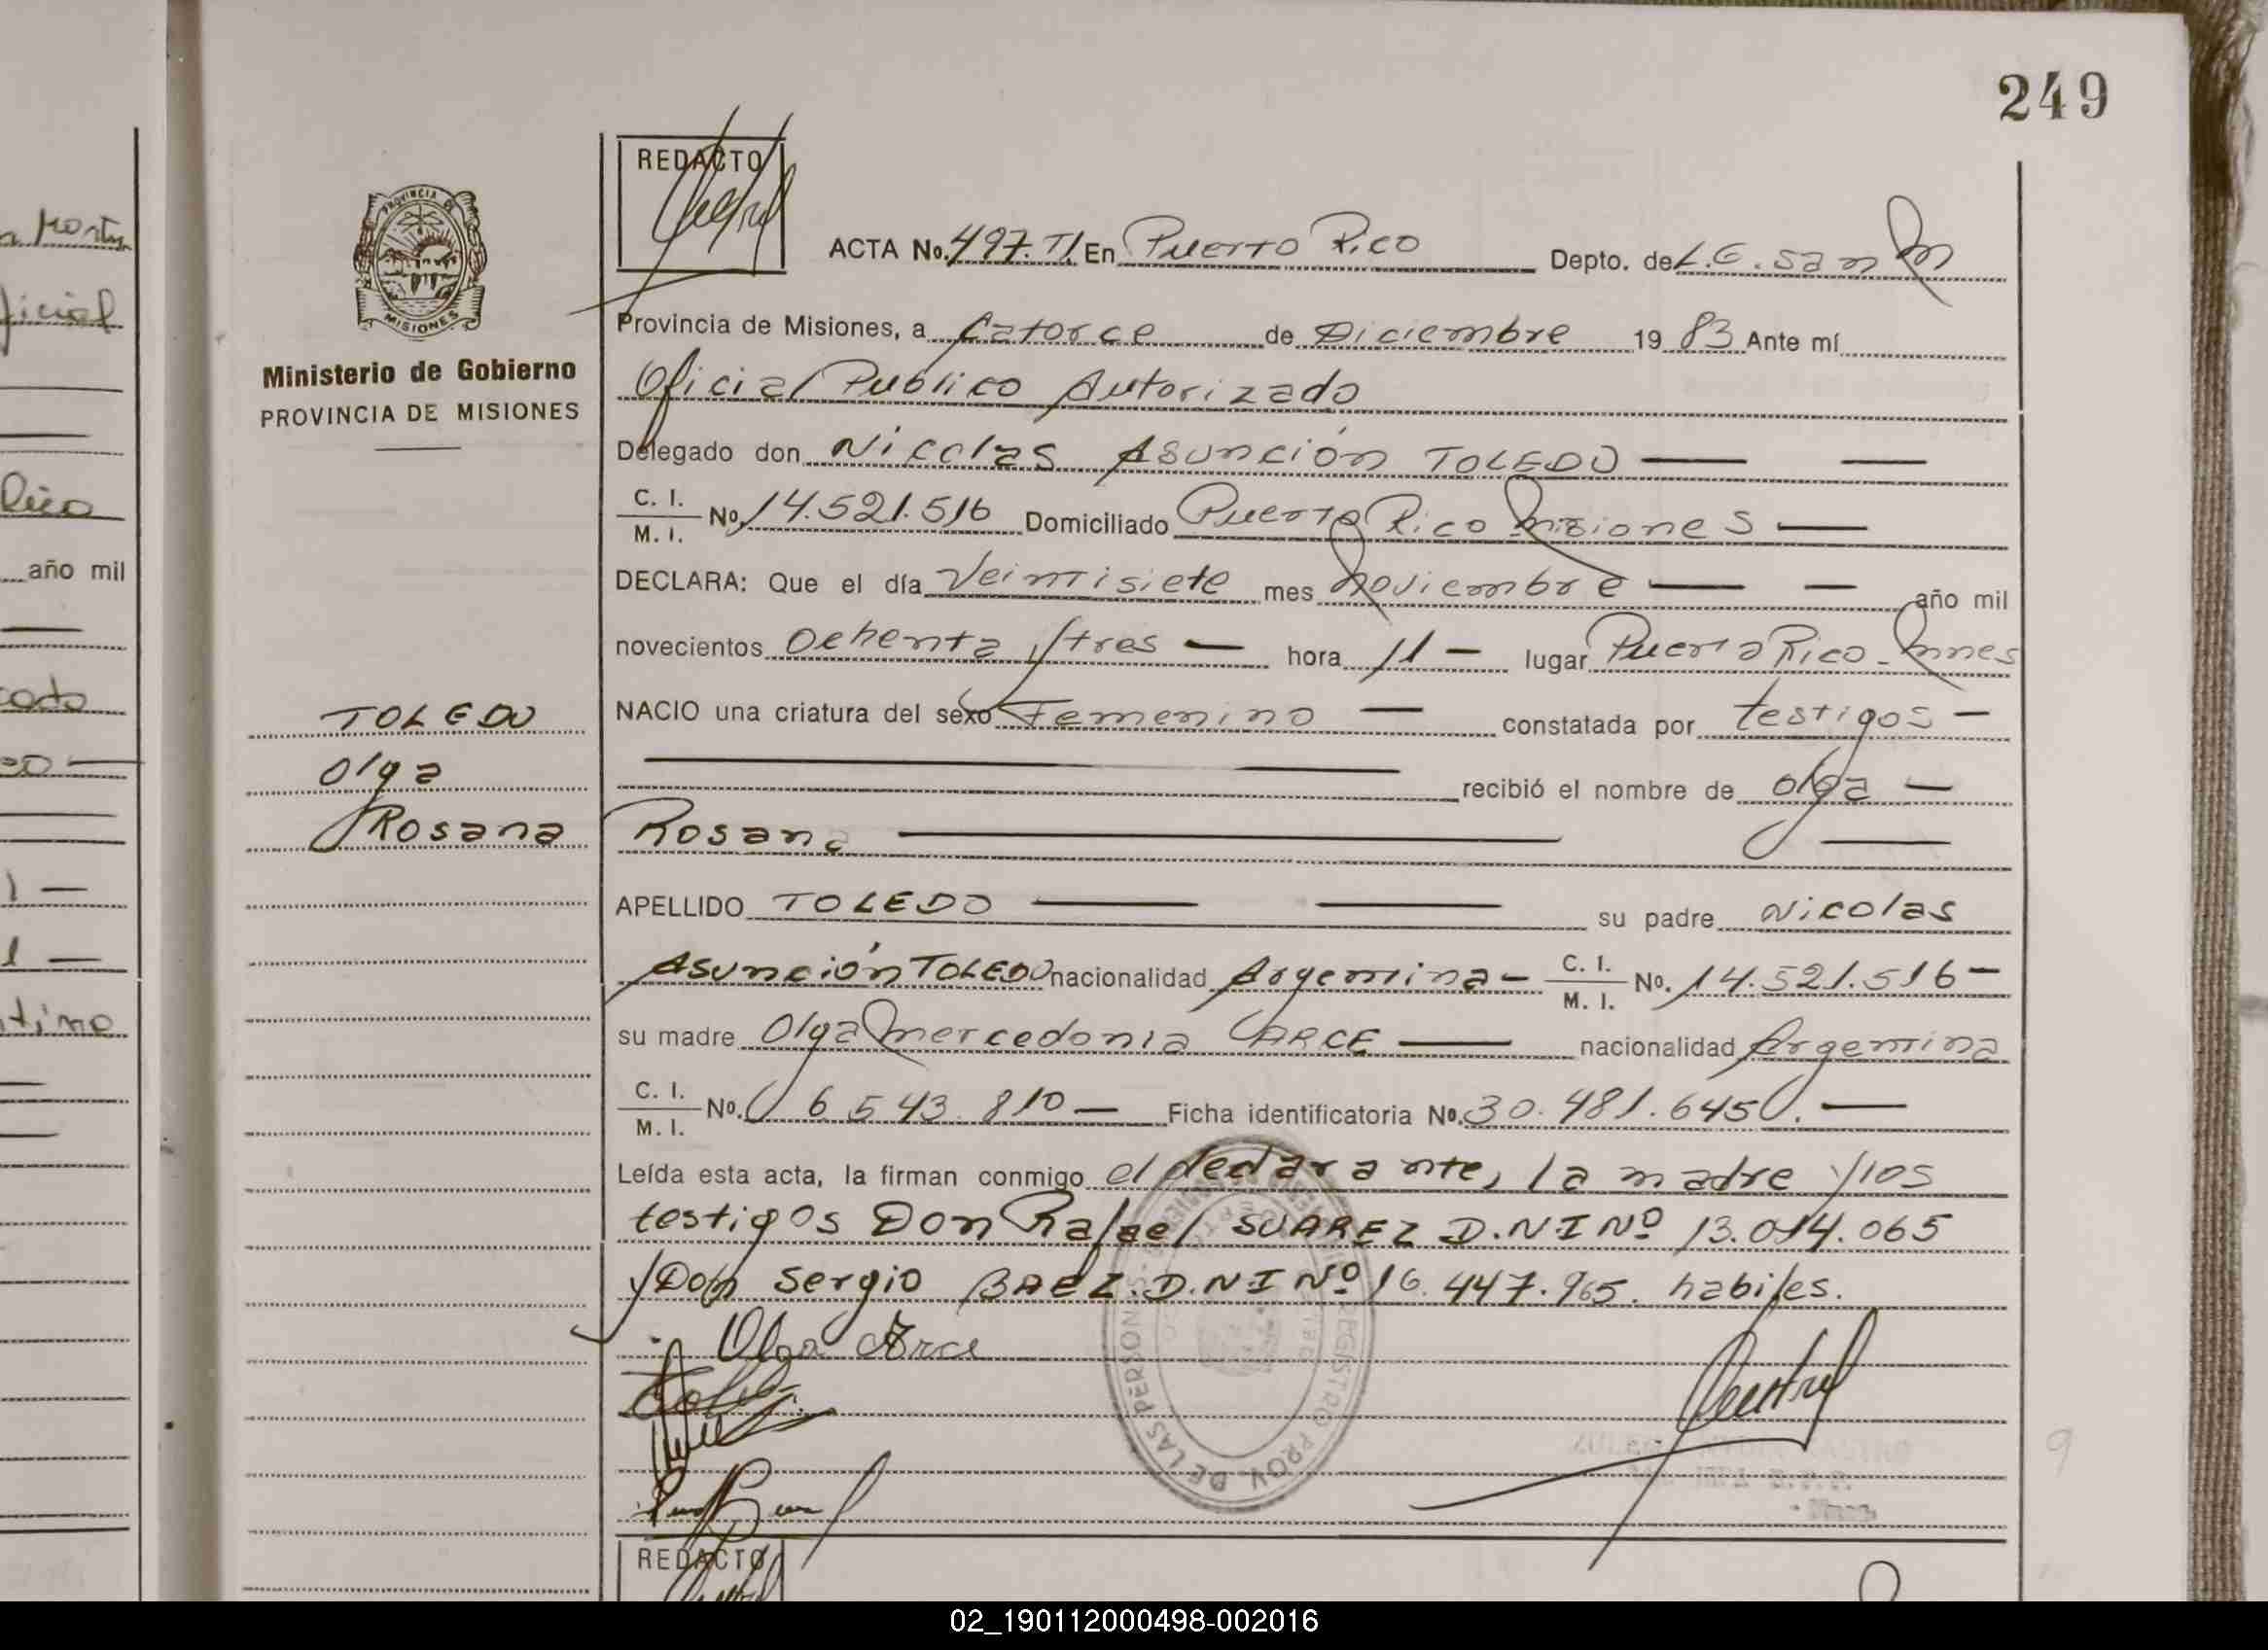 249
REDACTO
PROVINCIA DE
MISIONES
Ministerio de Gobierno
PROVINCIA DE MISIONES
ACTA No. 497. TI. En Puerto Rico Depto. de L.G. San M
Provincia de Misiones, a Catorce de Diciembre 19 83 Ante mí
Oficial Publico Autorizado
Delegado don Nicolas Asunción TOLEDO
C. I.
M. I.
No. 14.521.516 Domiciliado Puerto Rico Misiones
DECLARA: Que el día Veintisiete mes Noviembre año mil
novecientos Ochenta y tres hora 11 lugar Puerto Rico - Mnes
NACIO una criatura del sexo Femenino constatada por testigos
recibió el nombre de Olga
Rosana
APELLIDO TOLEDO su padre Nicolas
Asunción TOLEDO nacionalidad Argentina C. I.
M. I.
No. 14.521.516
su madre Olga Mercedonia ARCE nacionalidad Argentina
C. I.
M. I.
No. 16.543.810 Ficha identificatoria No. 30.481.645
Leída esta acta, la firman conmigo el declarante, la madre y los
testigos Don Rafael SUAREZ D.N.I Nº 13.014.065
y Don Sergio BAEZ. D.N.I Nº 16.447.965. habiles.
Olga Arce
TOLEDO
Olga
Rosana
REGISTRO PROV. DE LAS PERSONAS
REDACTO
n Mort
ficial
lico
año mil
cado
tino
02_190112000498-002016